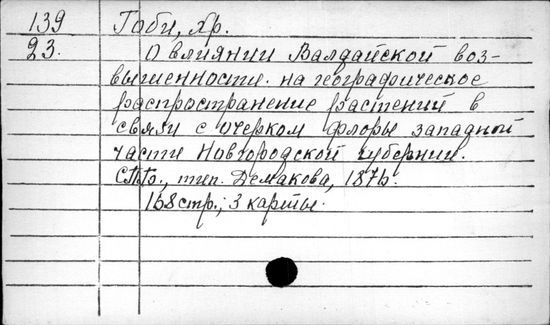 139 Гоби, Хр.
23. О влиянии Валдайской воз-
вышенности на географическое
распространение растений в
связи с очерком флоры западной
части Новгородской губернии.
СПб., тип. Демакова, 1876.
168 стр., 3 карты.